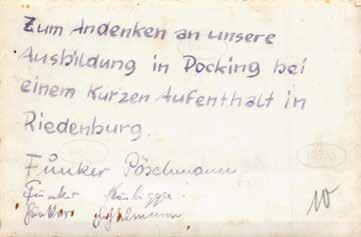 Zum Andenken an unsere
Ausbildung in Pocking bei
einem Kurzen Aufenthalt in
Riedenburg.
Funker Pöschmann
Funker
Funker
10